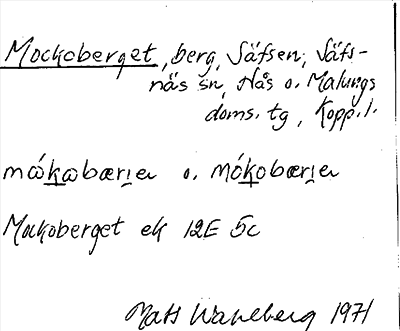 Mockoberget, berg, Säfsen, Säfs-
näs sn, Nås o. Malungs
doms. tg, Kopp. l.
mωkωbærịeṛ o. mókobærịeṛ
Mockoberget ek 12E 5c
Mats Wahlberg 1971